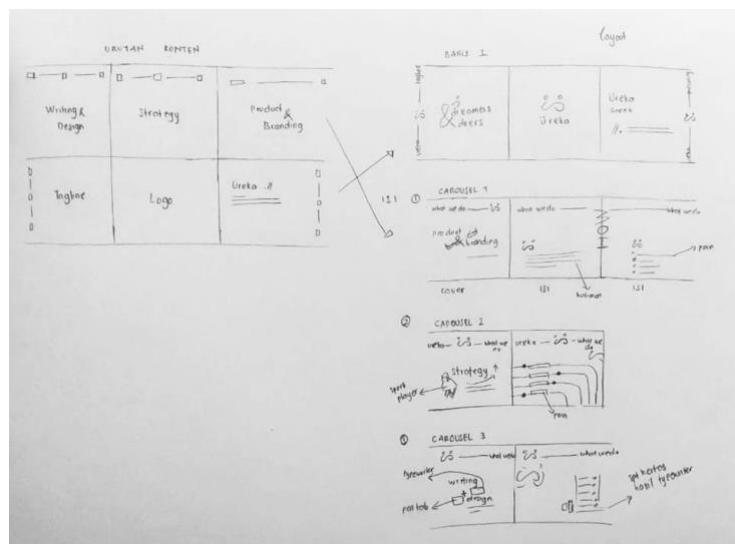 URUTAN KONTEN
Writing &
Design
Strategy
Product
&
Branding
Tagline
Logo
Ureka
layout
BARIS 1
& dreamers
doers
Ureka
Ureka
ISI
① CAROUSEL 1
what we do
what we do
what we do
Product
& branding
poin
cover
ISI
ISI
② CAROUSEL 2
ureka
what we do
ureka
what we do
Strategy
sport
player
poin
③ CAROUSEL 3
what we do
what we do
typewriter
writing
+
design
pen tab
spt kertas
hasil typewriter